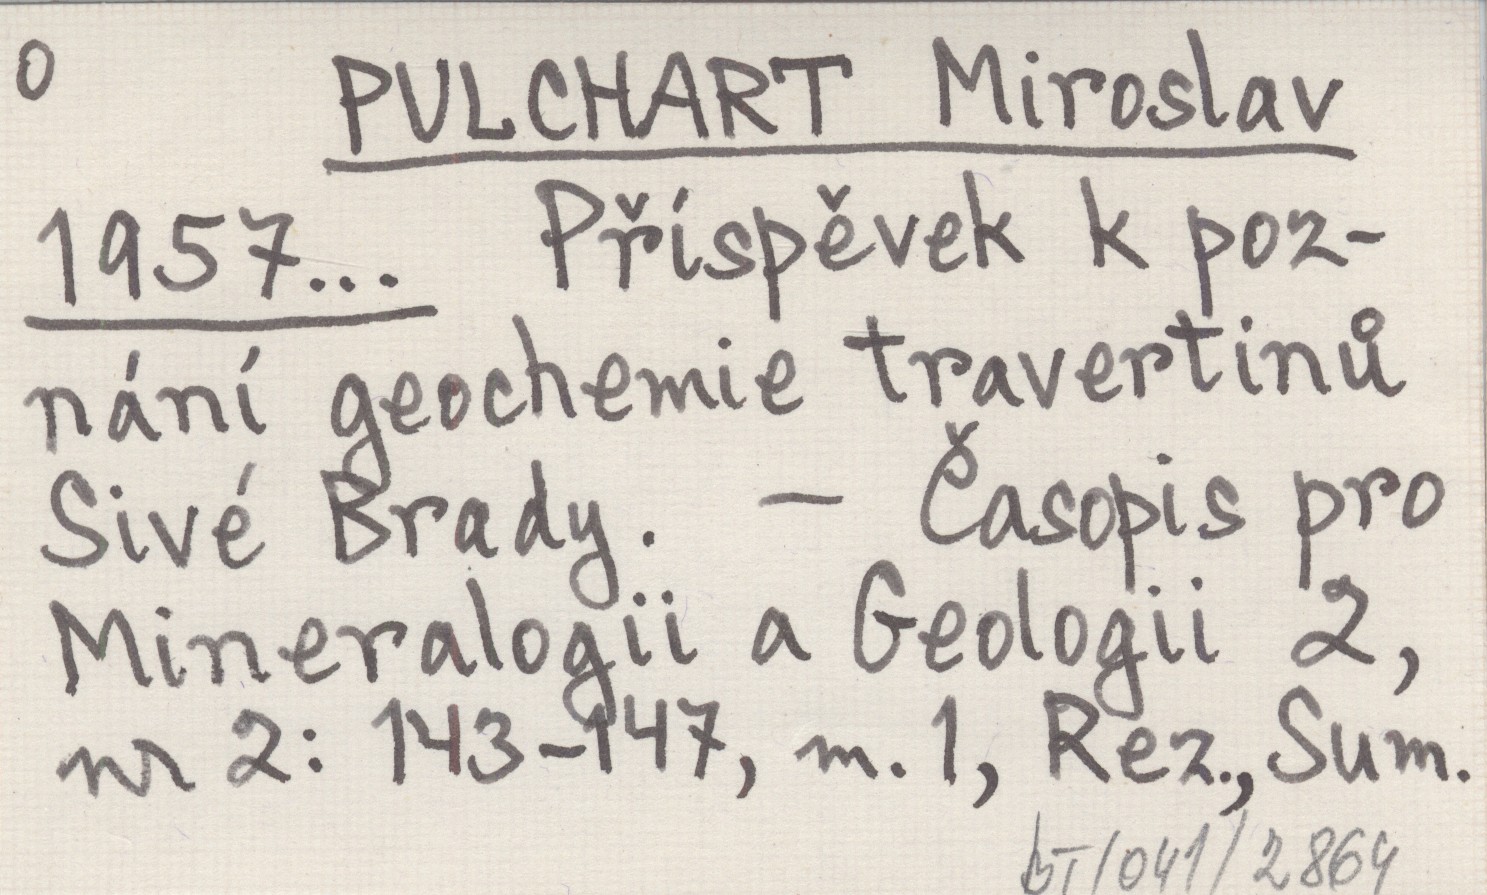 0 PULCHART Miroslav
1957... Příspěvek k poz-
nání geochemie travertinů
Sivé Brady. — Časopis pro
Mineralogii a Geologii 2,
nr 2: 143-147, m. 1, Rez., Sum.
bT/041/2864